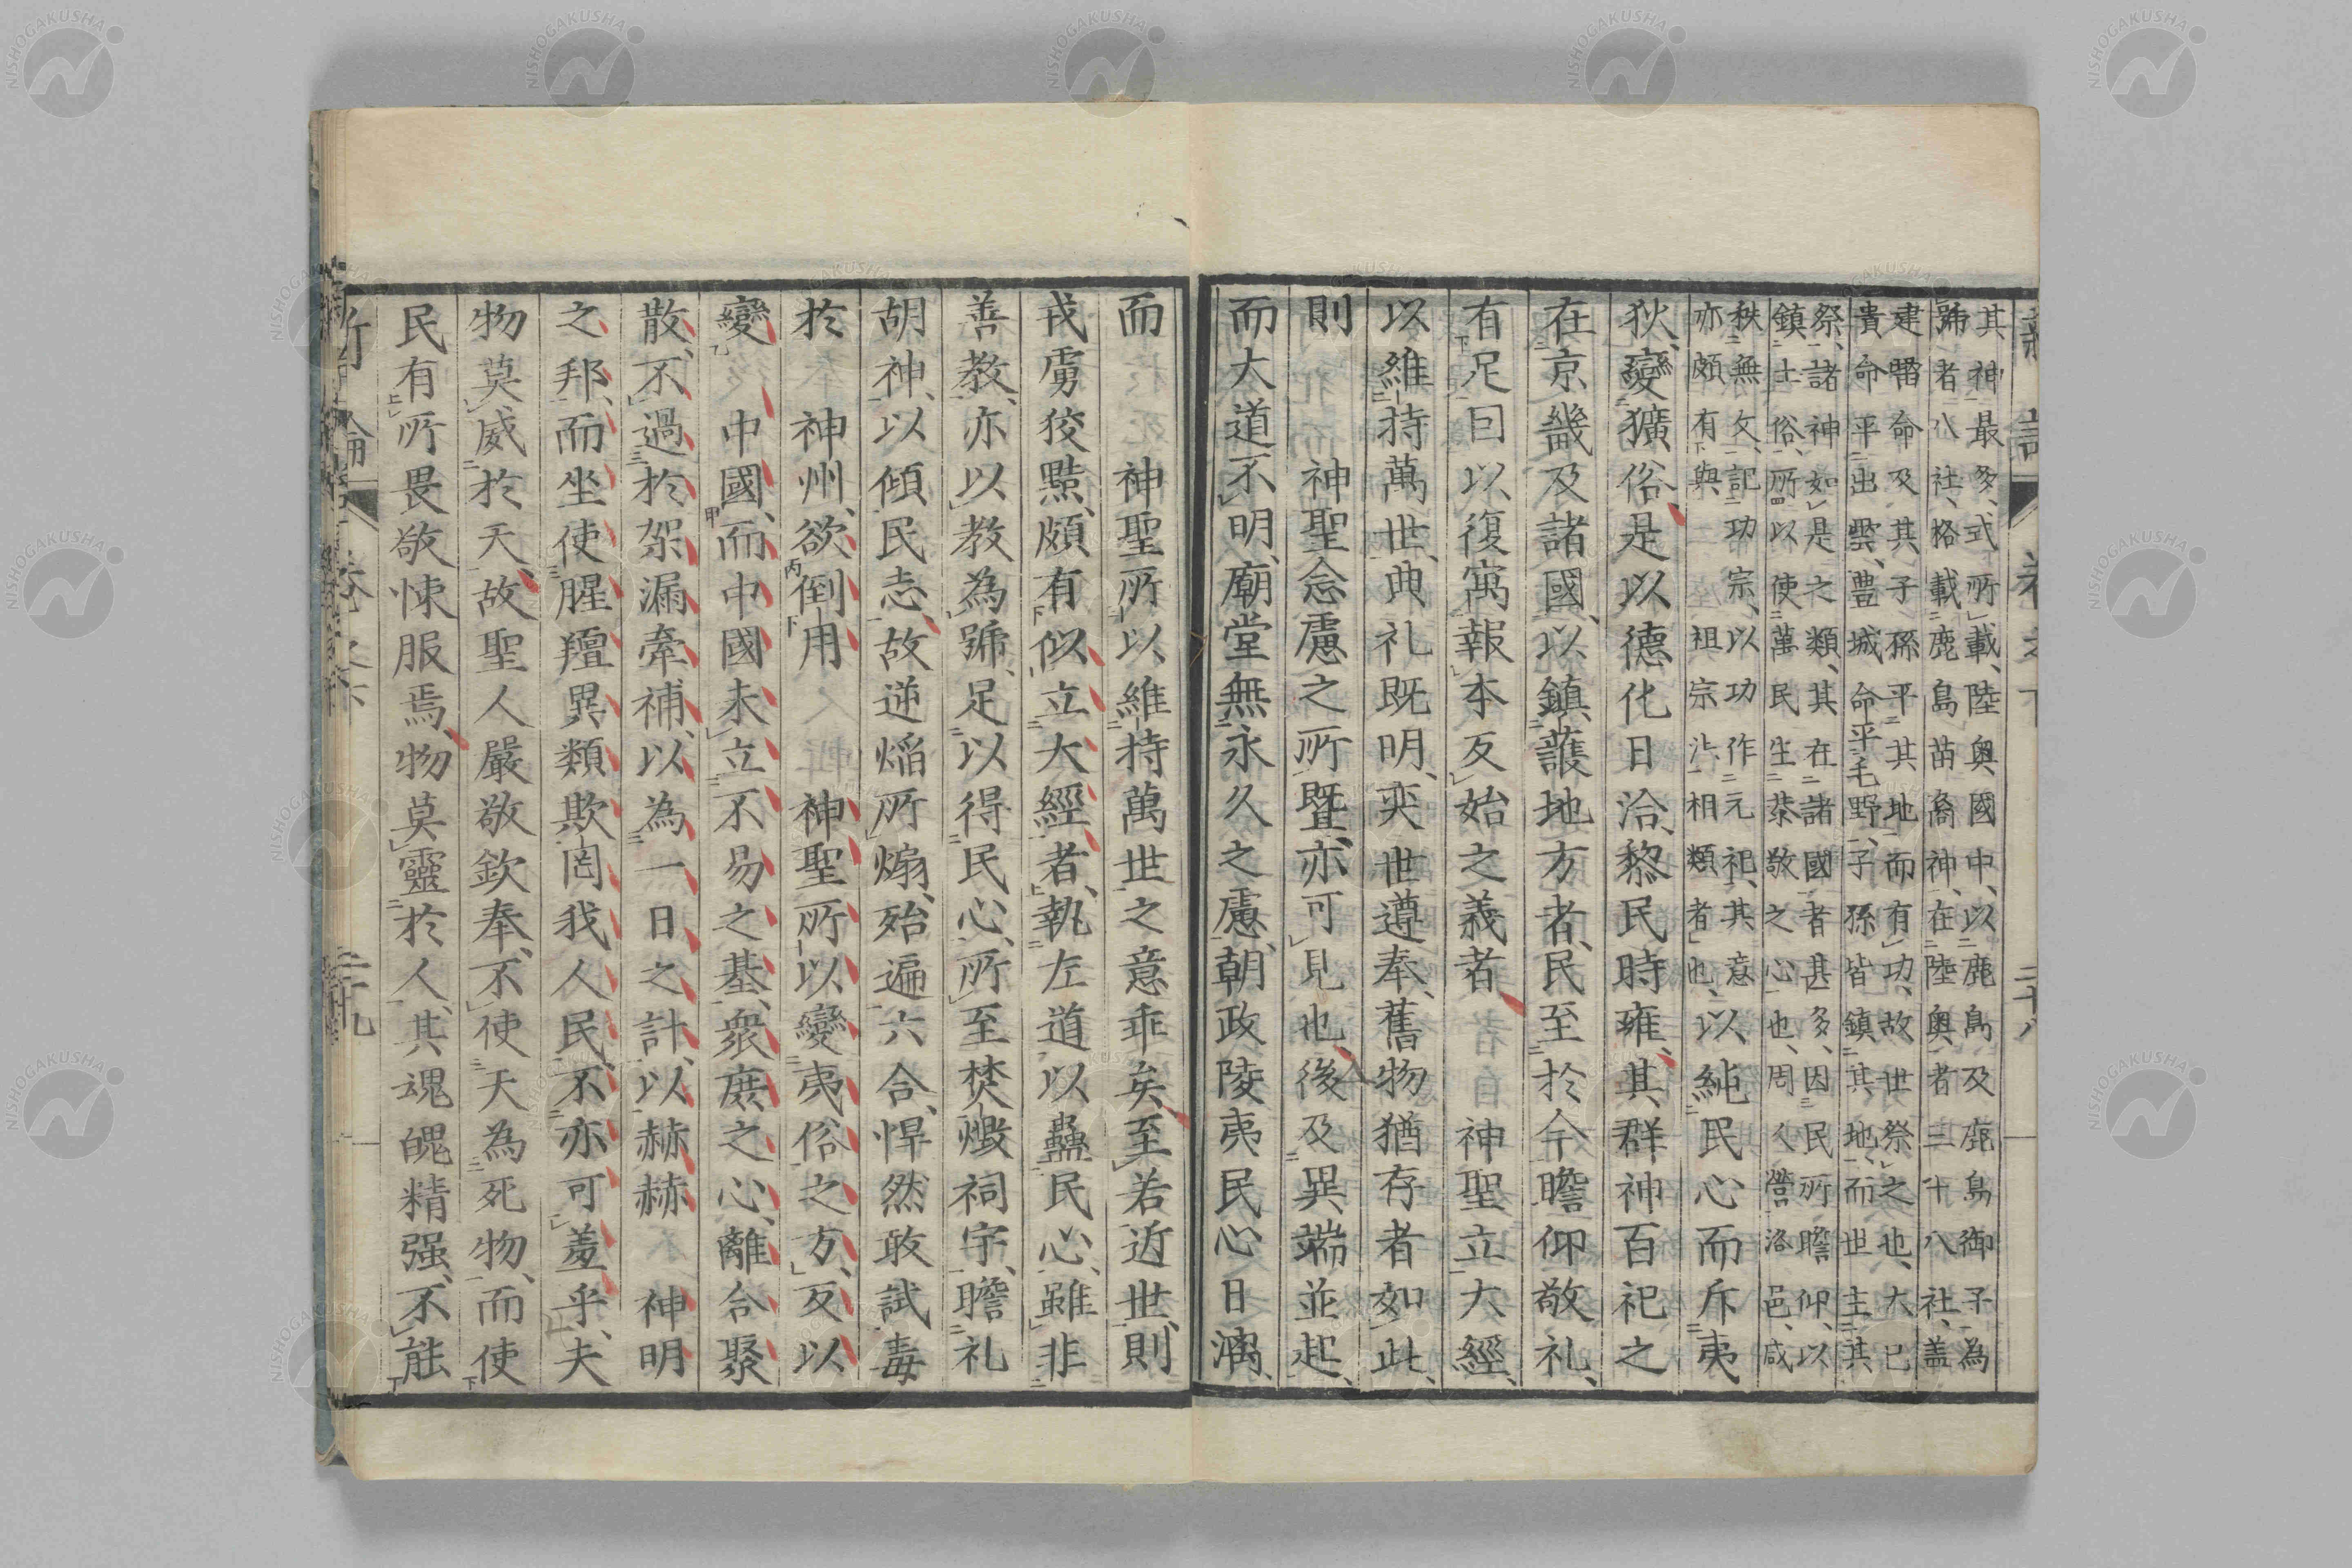 其神最多、式所載、陸奥國中、以鹿島及鹿島御子為
號者八社、格載鹿島苗裔神在陸奥者三十八社、盖
建甞命及其子孫平其地而有功、故世祭之也、大己
貴命平出雲、豊城命平毛野、子孫皆鎮其地、而世主其
祭、諸神如是之類、其在諸國者甚多、因民所瞻仰、以
鎮土俗、所以使萬民生恭敬之心也、周人營洛邑、咸
秩無文、記功宗、以功作元祀、其意
亦頗有與祖宗法相類者也、以純民心而斥夷
狄、變獷俗、是以德化日洽、黎民時雍、其群神百祀之
在京畿及諸國、以鎮護地方者、民至於今瞻仰敬礼、
有足曰以復寓報本反始之義者 神聖立大經、
以維持萬世、典礼既明、奕世遵奉、舊物猶存者如此、
則 神聖念慮之所曁、亦可見也、後及異端並起、
而大道不明、廟堂無永久之慮、朝政陵夷民心日漓、
而 神聖所以維持萬世之意乖矣、至若近世、則
戎虜狡黠、頗有似立大經者、執左道以蠱民心、雖非
善教、亦以教為號、足以得民心、所至焚燬祠宇、瞻礼
胡神、以傾民志、故逆燄所煽、殆遍六合、悍然敢試毒
於 神州、欲倒用 神聖所以變夷俗之方、反以
變 中國、而中國未立不易之基、衆庶之心、離合聚
散、不過於架漏牽補、以為一日之計、以赫赫 神明
之邦、而坐使腥羶異類欺罔我人民、不亦可羞乎、夫
物莫威於天、故聖人嚴敬欽奉、不使天為死物、而使
民有所畏敬悚服焉、物莫靈於人、其魂魄精强、不能
新論 卷之下 二十九